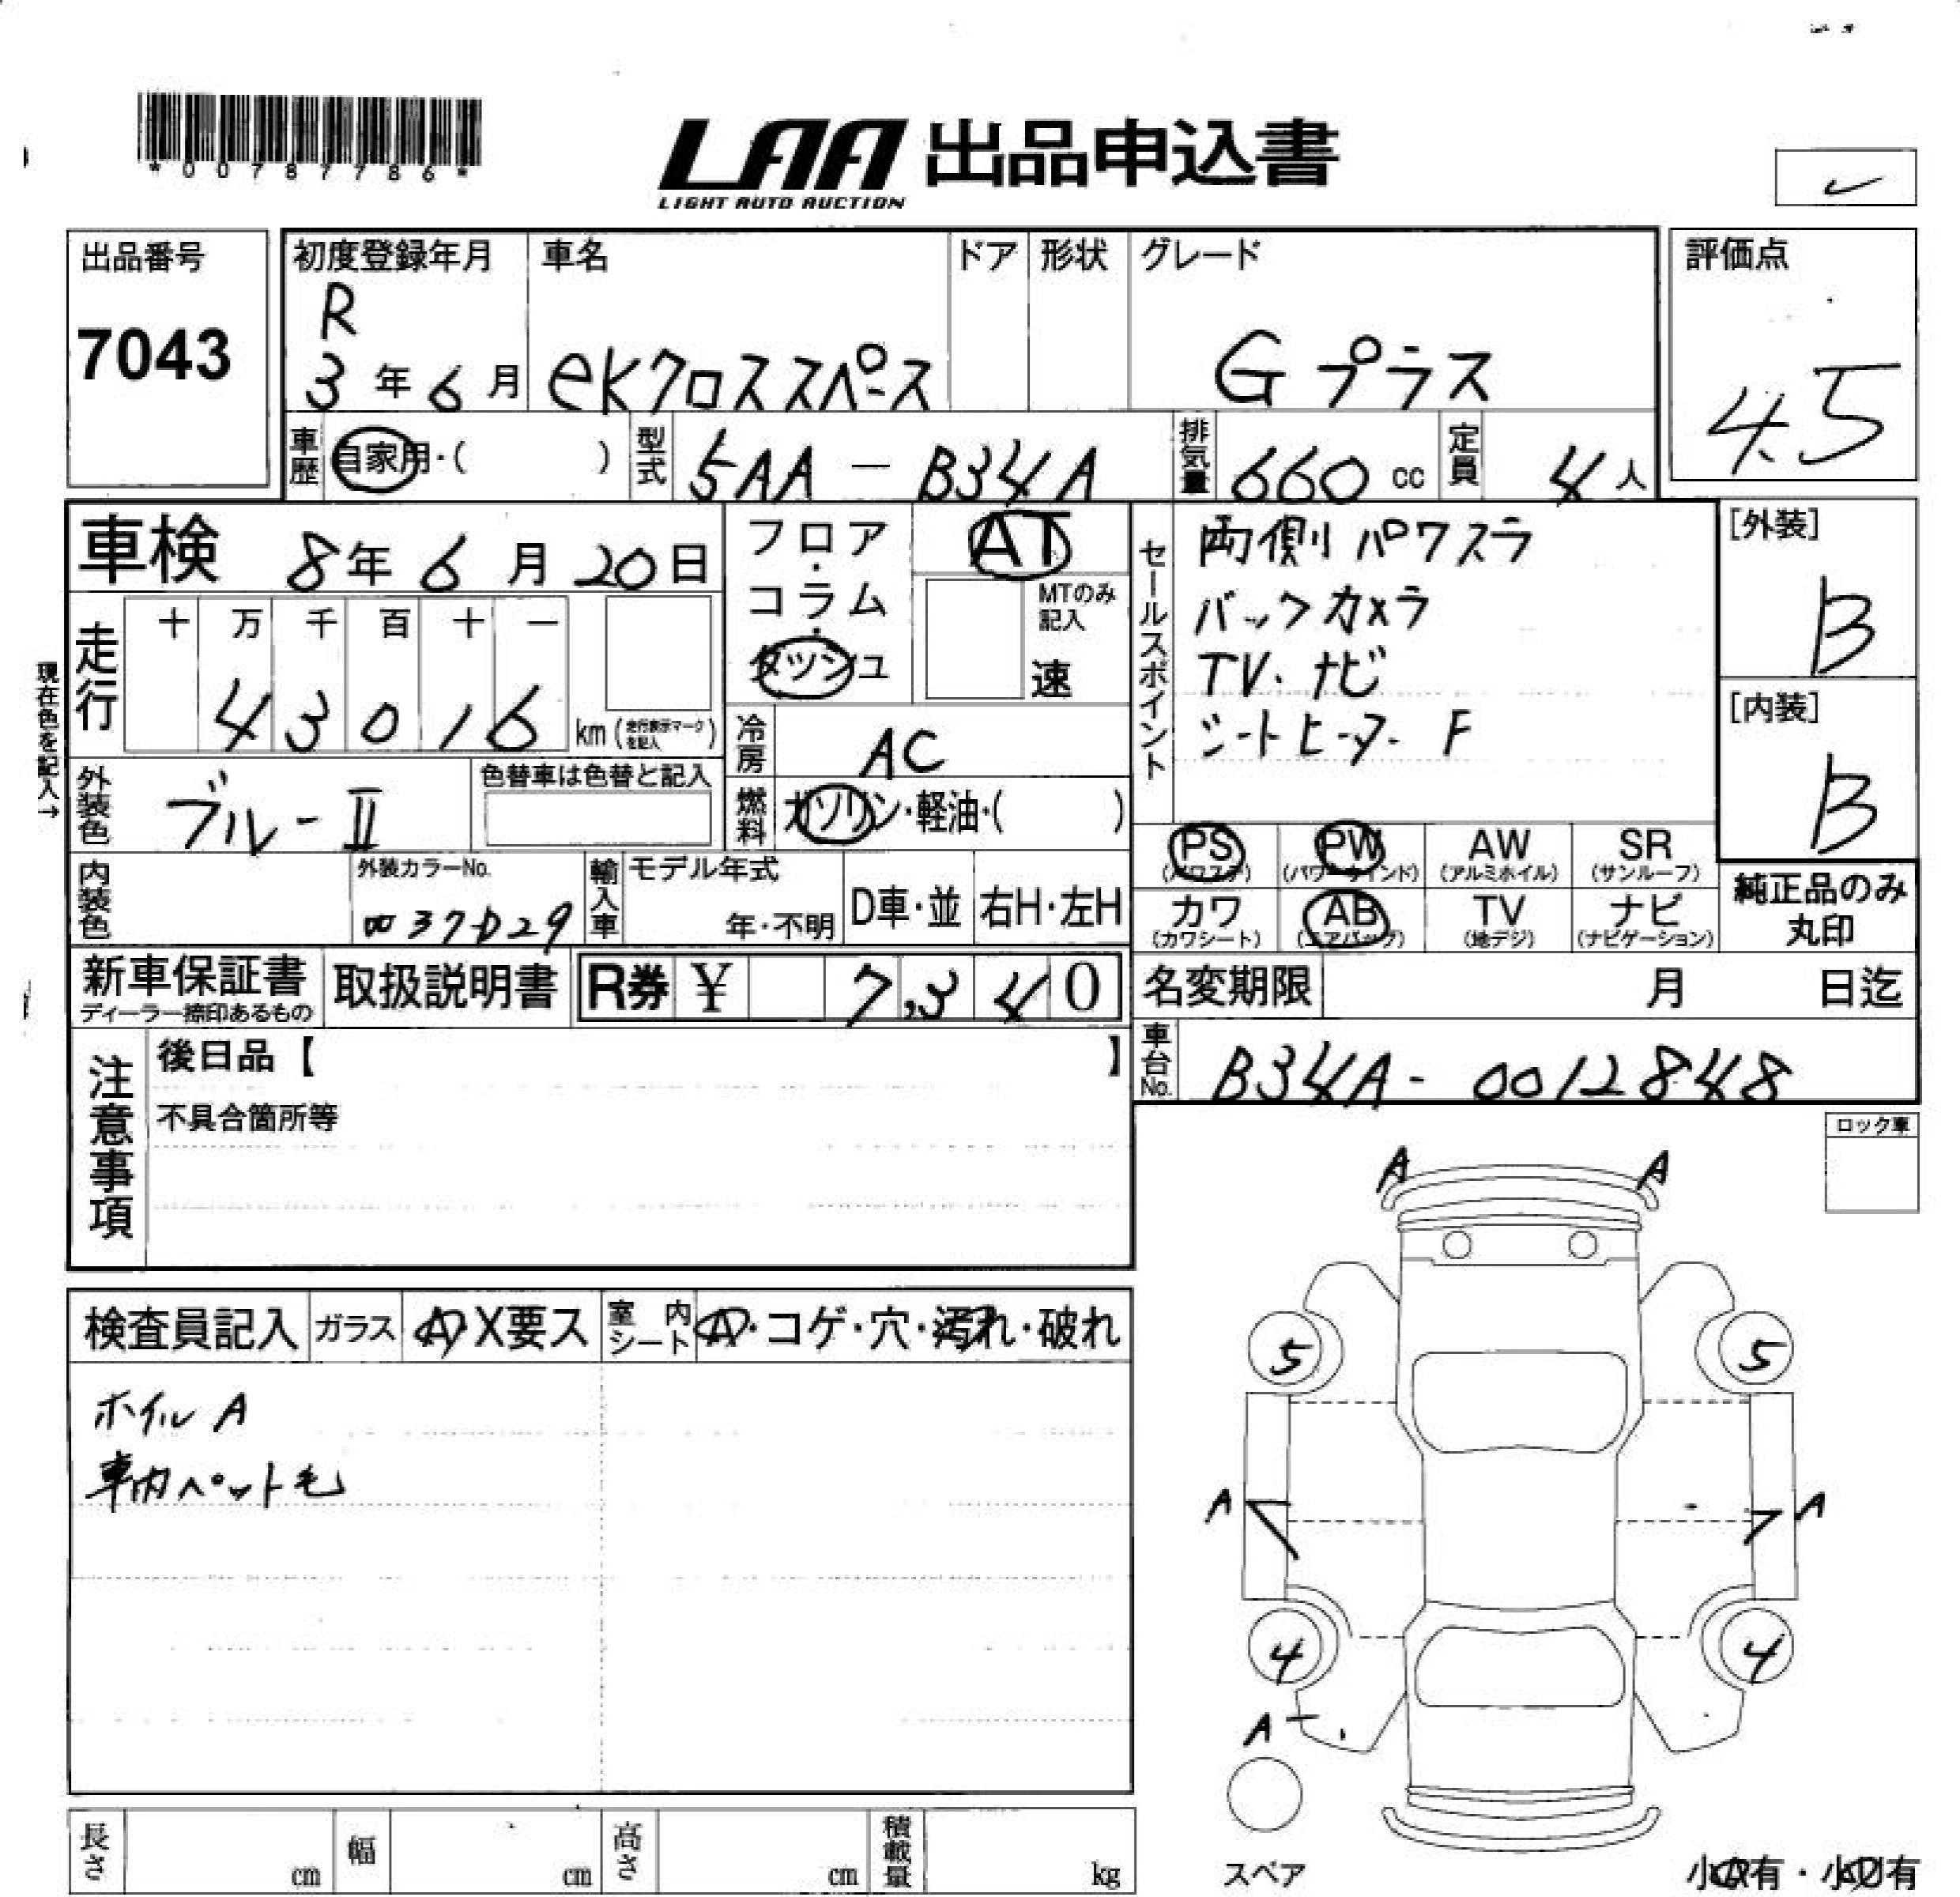 *00787786*
LAA 出品申込書
LIGHT AUTO AUCTION
出品番号
7043
初度登録年月
R
3年6月
車名
eKクロススペース
ドア
形状
グレード
Gプラス
評価点
4.5
車歴
自家用・( )
型式
5AA-B34A
排気量
660 cc
定員
4人
車検 8年6月20日
フロア・コラム・ダッシュ
AT
MTのみ記入
速
セールスポイント
両側パワスラ
バックカメラ
TV.ナビ
シートヒーター F
[外装]
B
[内装]
B
現在色を記入→
走行
十 万 千 百 十 一
4 3 0 1 6
km (走行表示マークを記入)
冷房
AC
外装色
ブルーII
色替車は色替と記入
燃料
ガソリン・軽油・( )
PS (パワステ)
PW (パワーウインド)
AW (アルミホイル)
SR (サンルーフ)
カワ (カワシート)
AB (エアバッグ)
TV (地デジ)
ナビ (ナビゲーション)
純正品のみ丸印
内装色
外装カラーNo.
輸入車
モデル年式
年・不明
D車・並
右H・左H
新車保証書
ディーラー捺印あるもの
取扱説明書
R券 ¥ 7,340
名変期限 月 日迄
車台No.
B34A-0012848
注意事項
後日品【 】
不具合箇所等
ロック車
検査員記入
ガラス
A X要ス
室内シート
A・コゲ・穴・汚れ・破れ
ホイル A
車内ペット毛
A A
5 5
A A
4 4
A
スペア
小A有・小凹有
長さ cm
幅 cm
高さ cm
積載量 kg